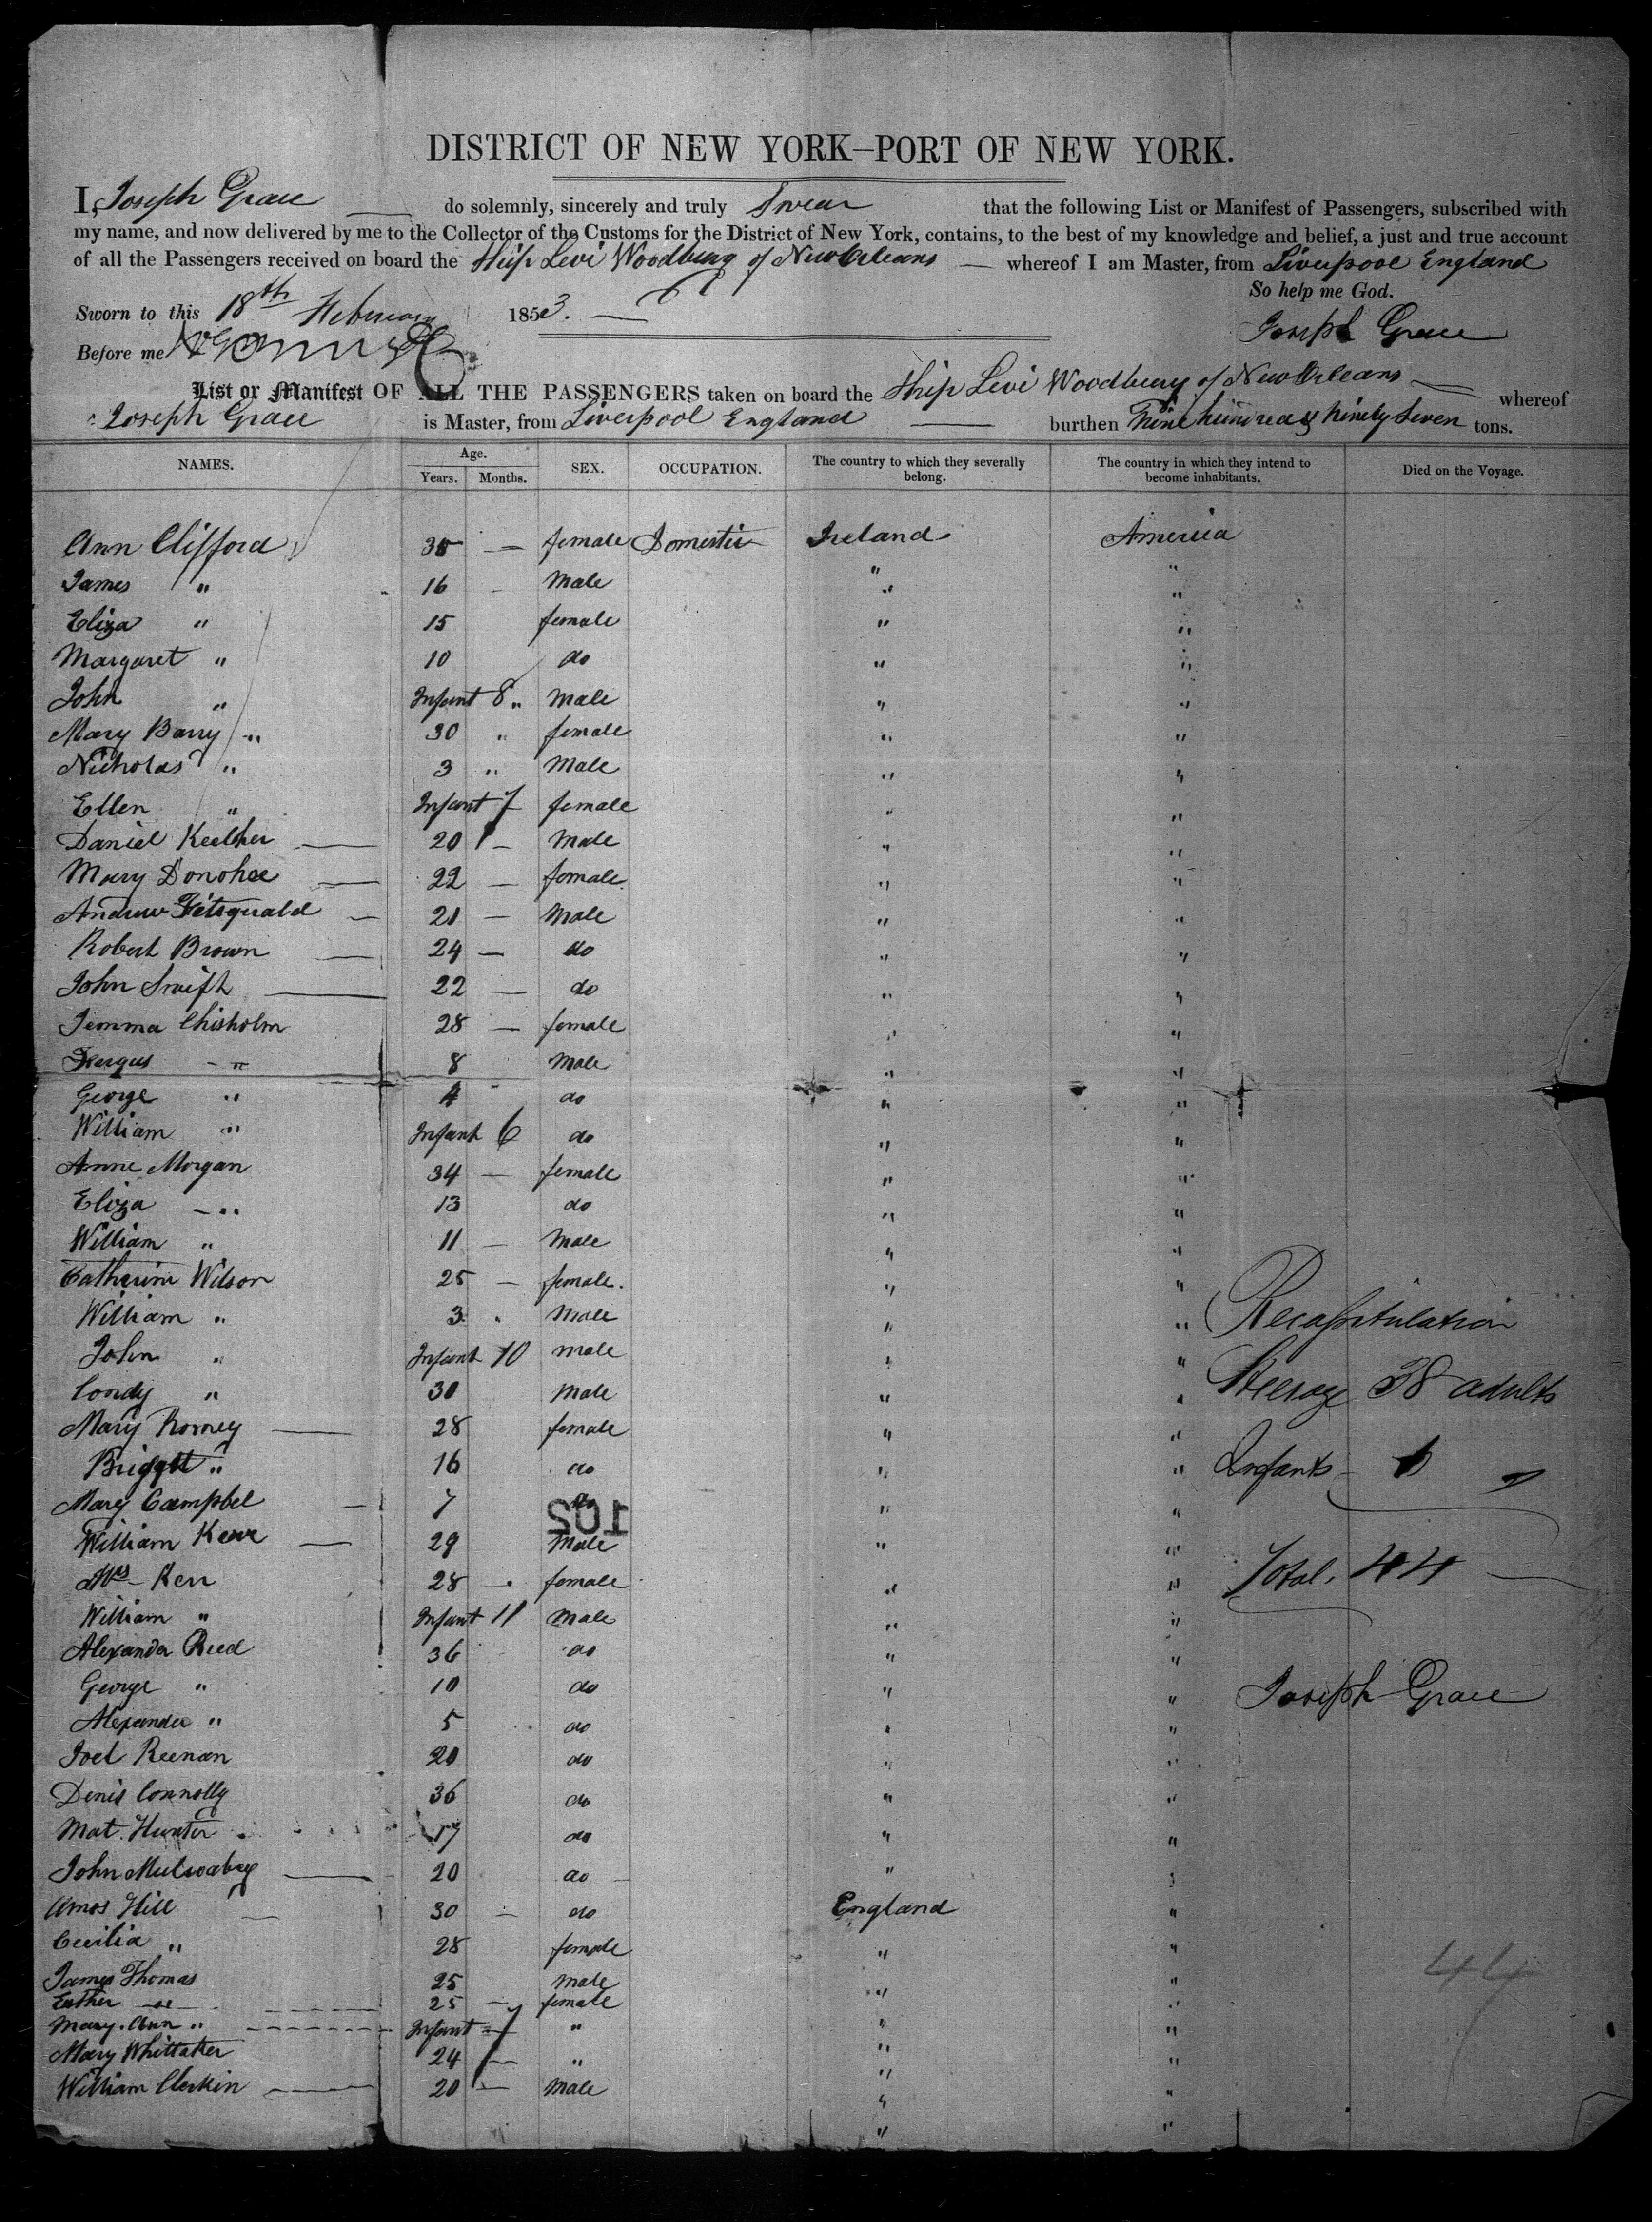 DISTRICT OF NEW YORK—PORT OF NEW YORK.
I, Joseph Grace do solemnly, sincerely and truly Swear that the following List or Manifest of Passengers, subscribed with
my name, and now delivered by me to the Collector of the Customs for the District of New York, contains, to the best of my knowledge and belief, a just and true account
of all the Passengers received on board the Ship Levi Woodbury of New Orleans whereof I am Master, from Liverpool England
So help me God.
Sworn to this 18th February 1853.
Joseph Grace
Before me
List or Manifest OF ALL THE PASSENGERS taken on board the Ship Levi Woodbury of New Orleans whereof
Joseph Grace is Master, from Liverpool England burthen Nine hundred & Ninety Seven tons.
NAMES. Age. Years. Months. SEX. OCCUPATION. The country to which they severally belong. The country in which they intend to become inhabitants. Died on the Voyage.
Ann Clifford 35 — female Domestic Ireland America
James " 16 - Male " "
Eliza " 15 female " "
Margaret " 10 do " "
John " Infant 8 " Male " "
Mary Barry " 30 " female " "
Nicholas " 3 " Male " "
Ellen " Infant 7 female " "
Daniel Keelher — 20 — Male " "
Mary Donohoe — 22 — female " "
Andrew Fitsgerald — 21 — Male " "
Robert Brown — 24 — do " "
John Swift — 22 — do " "
Jemma Chisholm 28 — female " "
Fergus " 8 Male " "
George " 4 do " "
William " Infant 6 do " "
Anne Morgan 34 — female " "
Eliza " 13 do " "
William " 11 — Male " "
Catherine Wilson 25 — female. " "
William " 3 " Male " "
John " Infant 10 male " "
Condy " 30 Male " "
Mary Romey — 28 female " "
Bridget " 16 do " "
Mary Campbel — 7 do " "
William Kerr — 29 Male " "
Mrs Kerr 28 - female " "
William " Infant 11 Male " "
Alexander Reed 36 do " "
George " 10 do " "
Alexander " 5 do " "
Joel Keenan 20 do " "
Denis Connolly 36 do " "
Mat. Hunter 17 do " "
John — 20 do " "
Amos Hill — 30 — do England "
Cecilia " 28 female " "
James Thomas 25 male " "
Esther do 25 — female " "
Mary Ann " Infant 7 " " "
Mary Whittaker 24 — " " "
William Clerkin — 20 — Male " "
Recapitulation
Steerage 38 adults
Infants 6
Total, 44
Joseph Grace
44
102